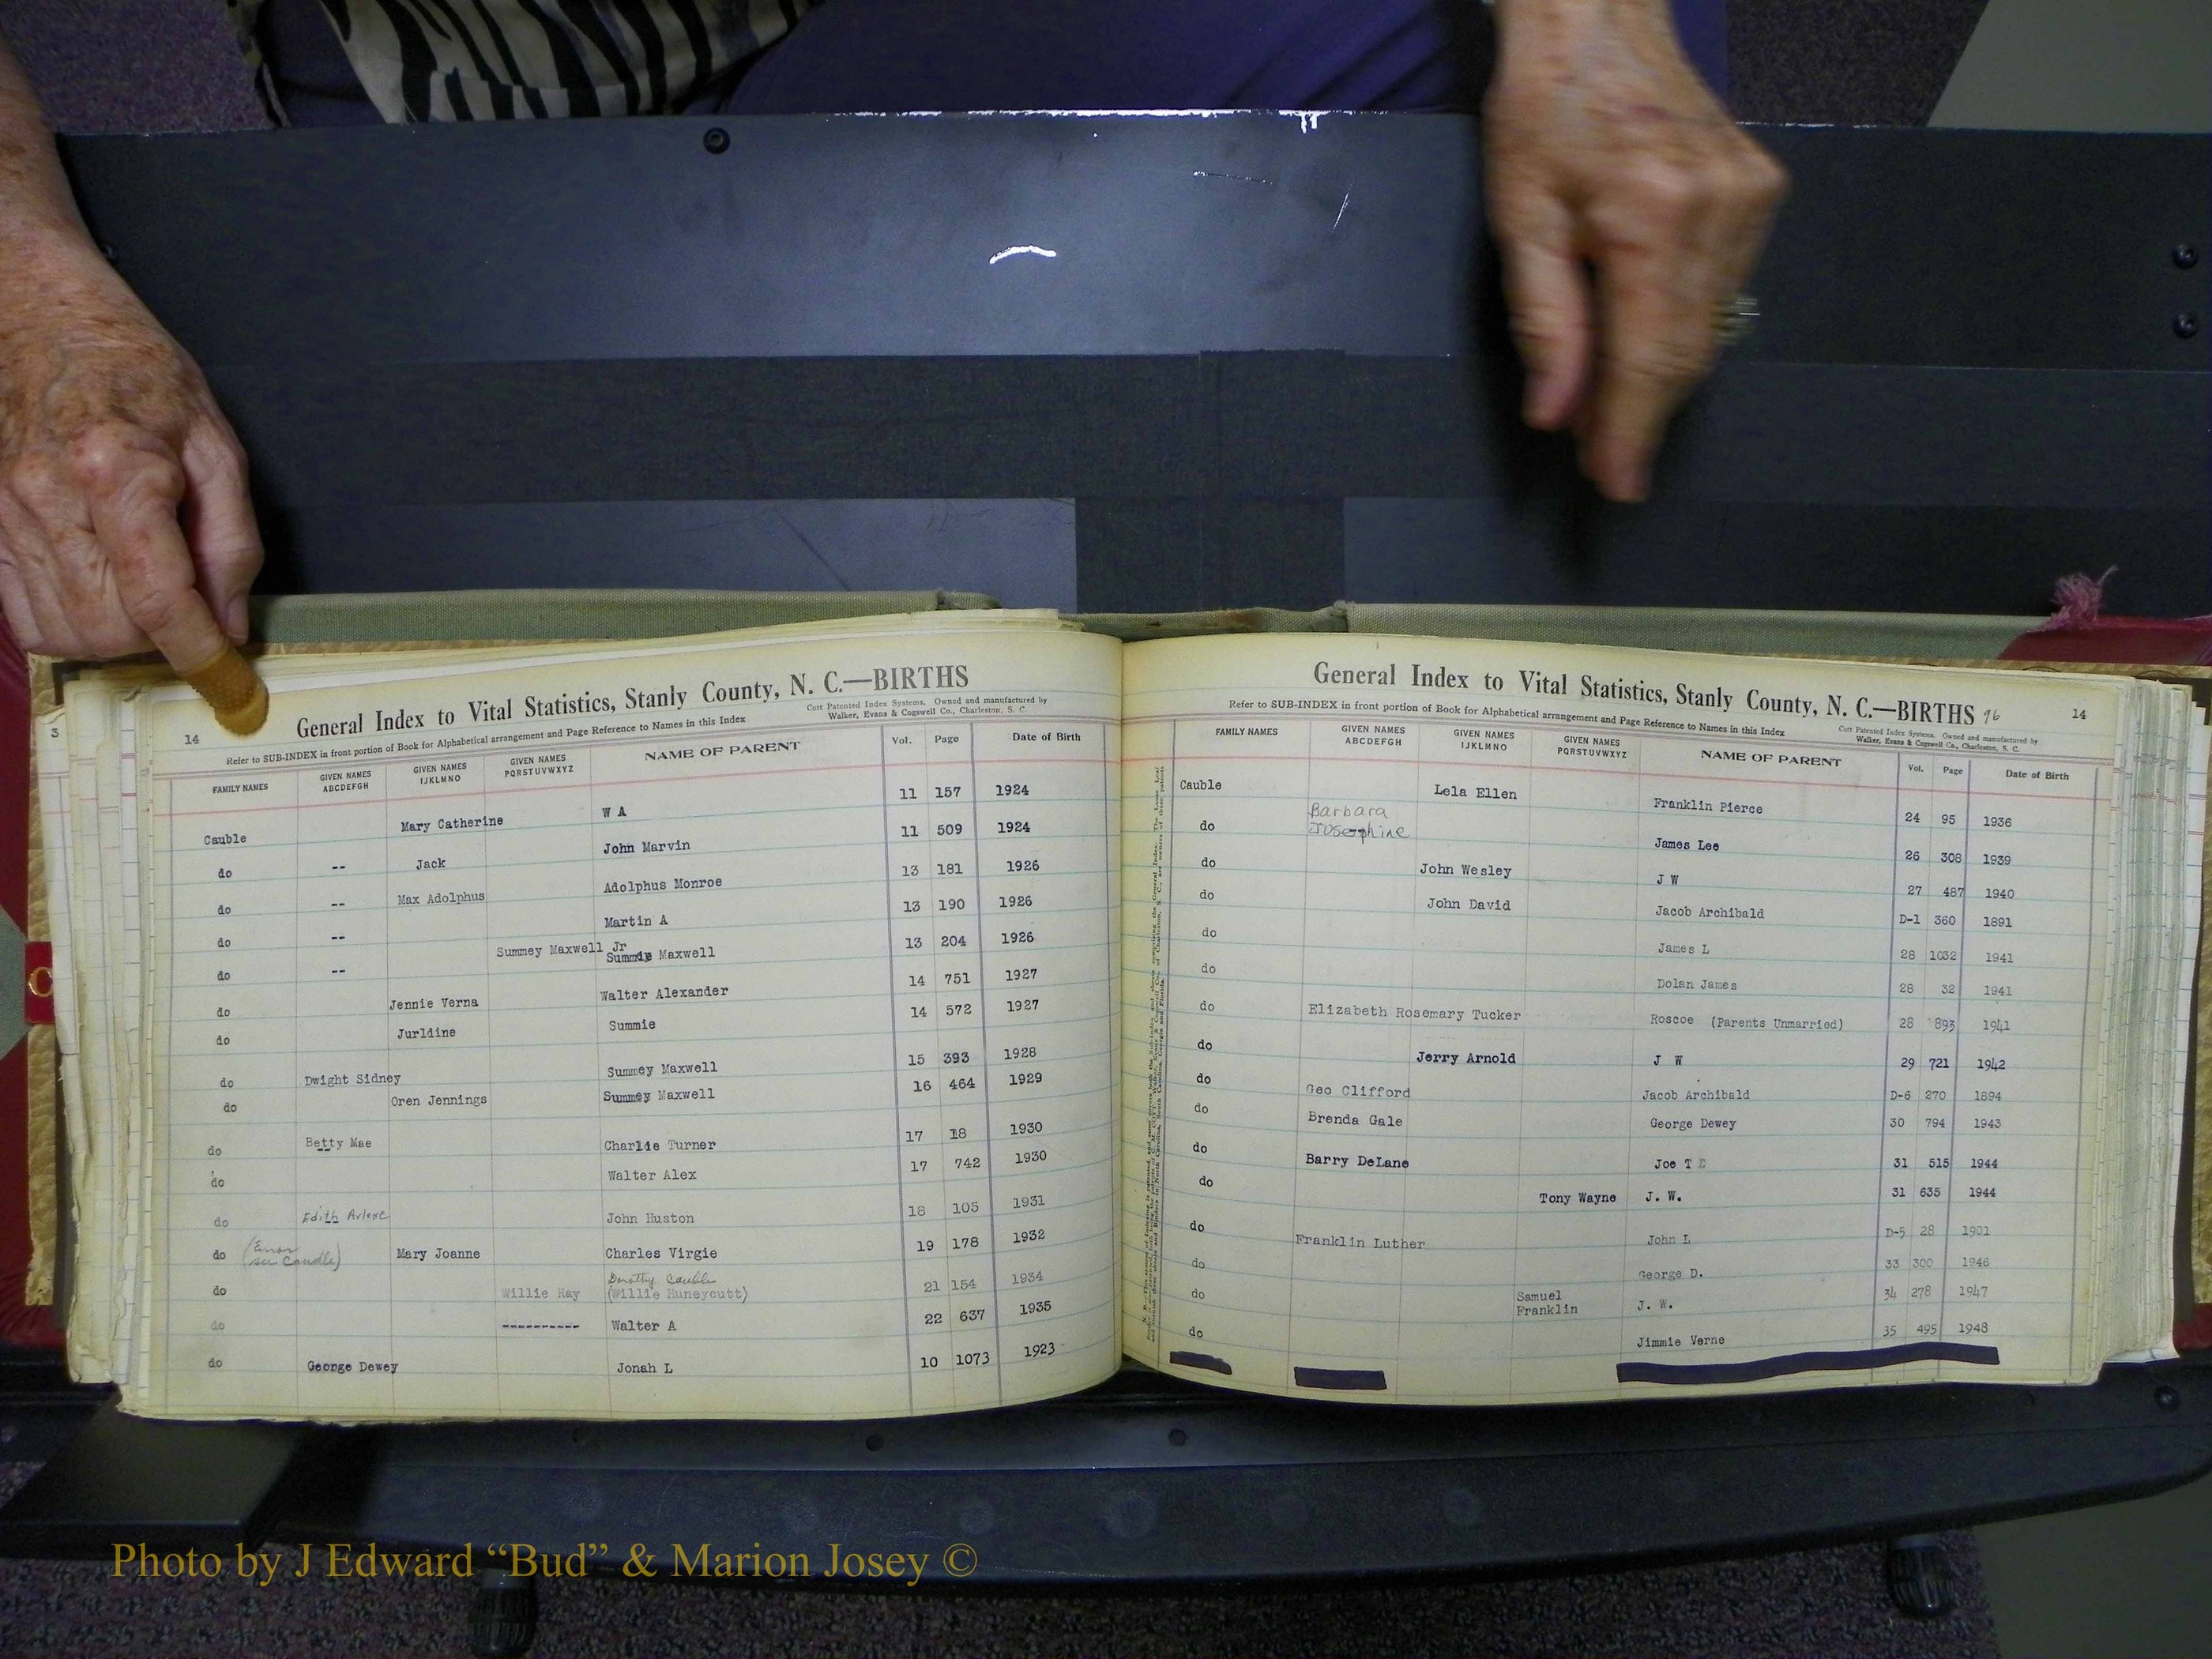 3
14
General Index to Vital Statistics, Stanly County, N. C.—BIRTHS
Refer to SUB-INDEX in front portion of Book for Alphabetical arrangement and Page Reference to Names in this Index
Cott Patented Index Systems. Owned and manufactured by
Walker, Evans & Cogswell Co., Charleston, S. C.
FAMILY NAMES GIVEN NAMES ABCDEFGH GIVEN NAMES IJKLMNO GIVEN NAMES PQRSTUVWXYZ NAME OF PARENT Vol. Page Date of Birth
Cauble Mary Catherine W A 11 157 1924
do -- Jack John Marvin 11 509 1924
do -- Max Adolphus Adolphus Monroe 13 181 1926
do -- Martin A 13 190 1926
do -- Summey Maxwell Jr Summie Maxwell 13 204 1926
do Jennie Verna Walter Alexander 14 751 1927
do Jurldine Summie 14 572 1927
do Dwight Sidney Summey Maxwell 15 393 1928
do Oren Jennings Summey Maxwell 16 464 1929
do Betty Mae Charlie Turner 17 18 1930
do Walter Alex 17 742 1930
do Edith Arlene John Huston 18 105 1931
do (Error see Caudle) Mary Joanne Charles Virgie 19 178 1932
do Willie Ray Dorothy Cauble (Willie Huneycutt) 21 154 1934
do ---------- Walter A 22 637 1935
do George Dewey Jonah L 10 1073 1923
C
General Index to Vital Statistics, Stanly County, N. C.—BIRTHS 96
14
Refer to SUB-INDEX in front portion of Book for Alphabetical arrangement and Page Reference to Names in this Index
Cott Patented Index Systems. Owned and manufactured by
Walker, Evans & Cogswell Co., Charleston, S. C.
FAMILY NAMES GIVEN NAMES ABCDEFGH GIVEN NAMES IJKLMNO GIVEN NAMES PQRSTUVWXYZ NAME OF PARENT Vol. Page Date of Birth
Cauble Lela Ellen Franklin Pierce 24 95 1936
do Barbara Josephine James Lee 26 308 1939
do John Wesley J W 27 487 1940
do John David Jacob Archibald D-1 360 1891
do James L 28 1032 1941
do Dolan James 28 32 1941
do Elizabeth Rosemary Tucker Roscoe (Parents Unmarried) 28 893 1941
do Jerry Arnold J W 29 721 1942
do Geo Clifford Jacob Archibald D-6 270 1894
do Brenda Gale George Dewey 30 794 1943
do Barry DeLane Joe T E 31 515 1944
do Tony Wayne J. W. 31 635 1944
do Franklin Luther John L D-5 28 1901
do George D. 33 300 1946
do Samuel Franklin J. W. 34 278 1947
do Jimmie Verne 35 495 1948
Photo by J Edward “Bud” & Marion Josey ©